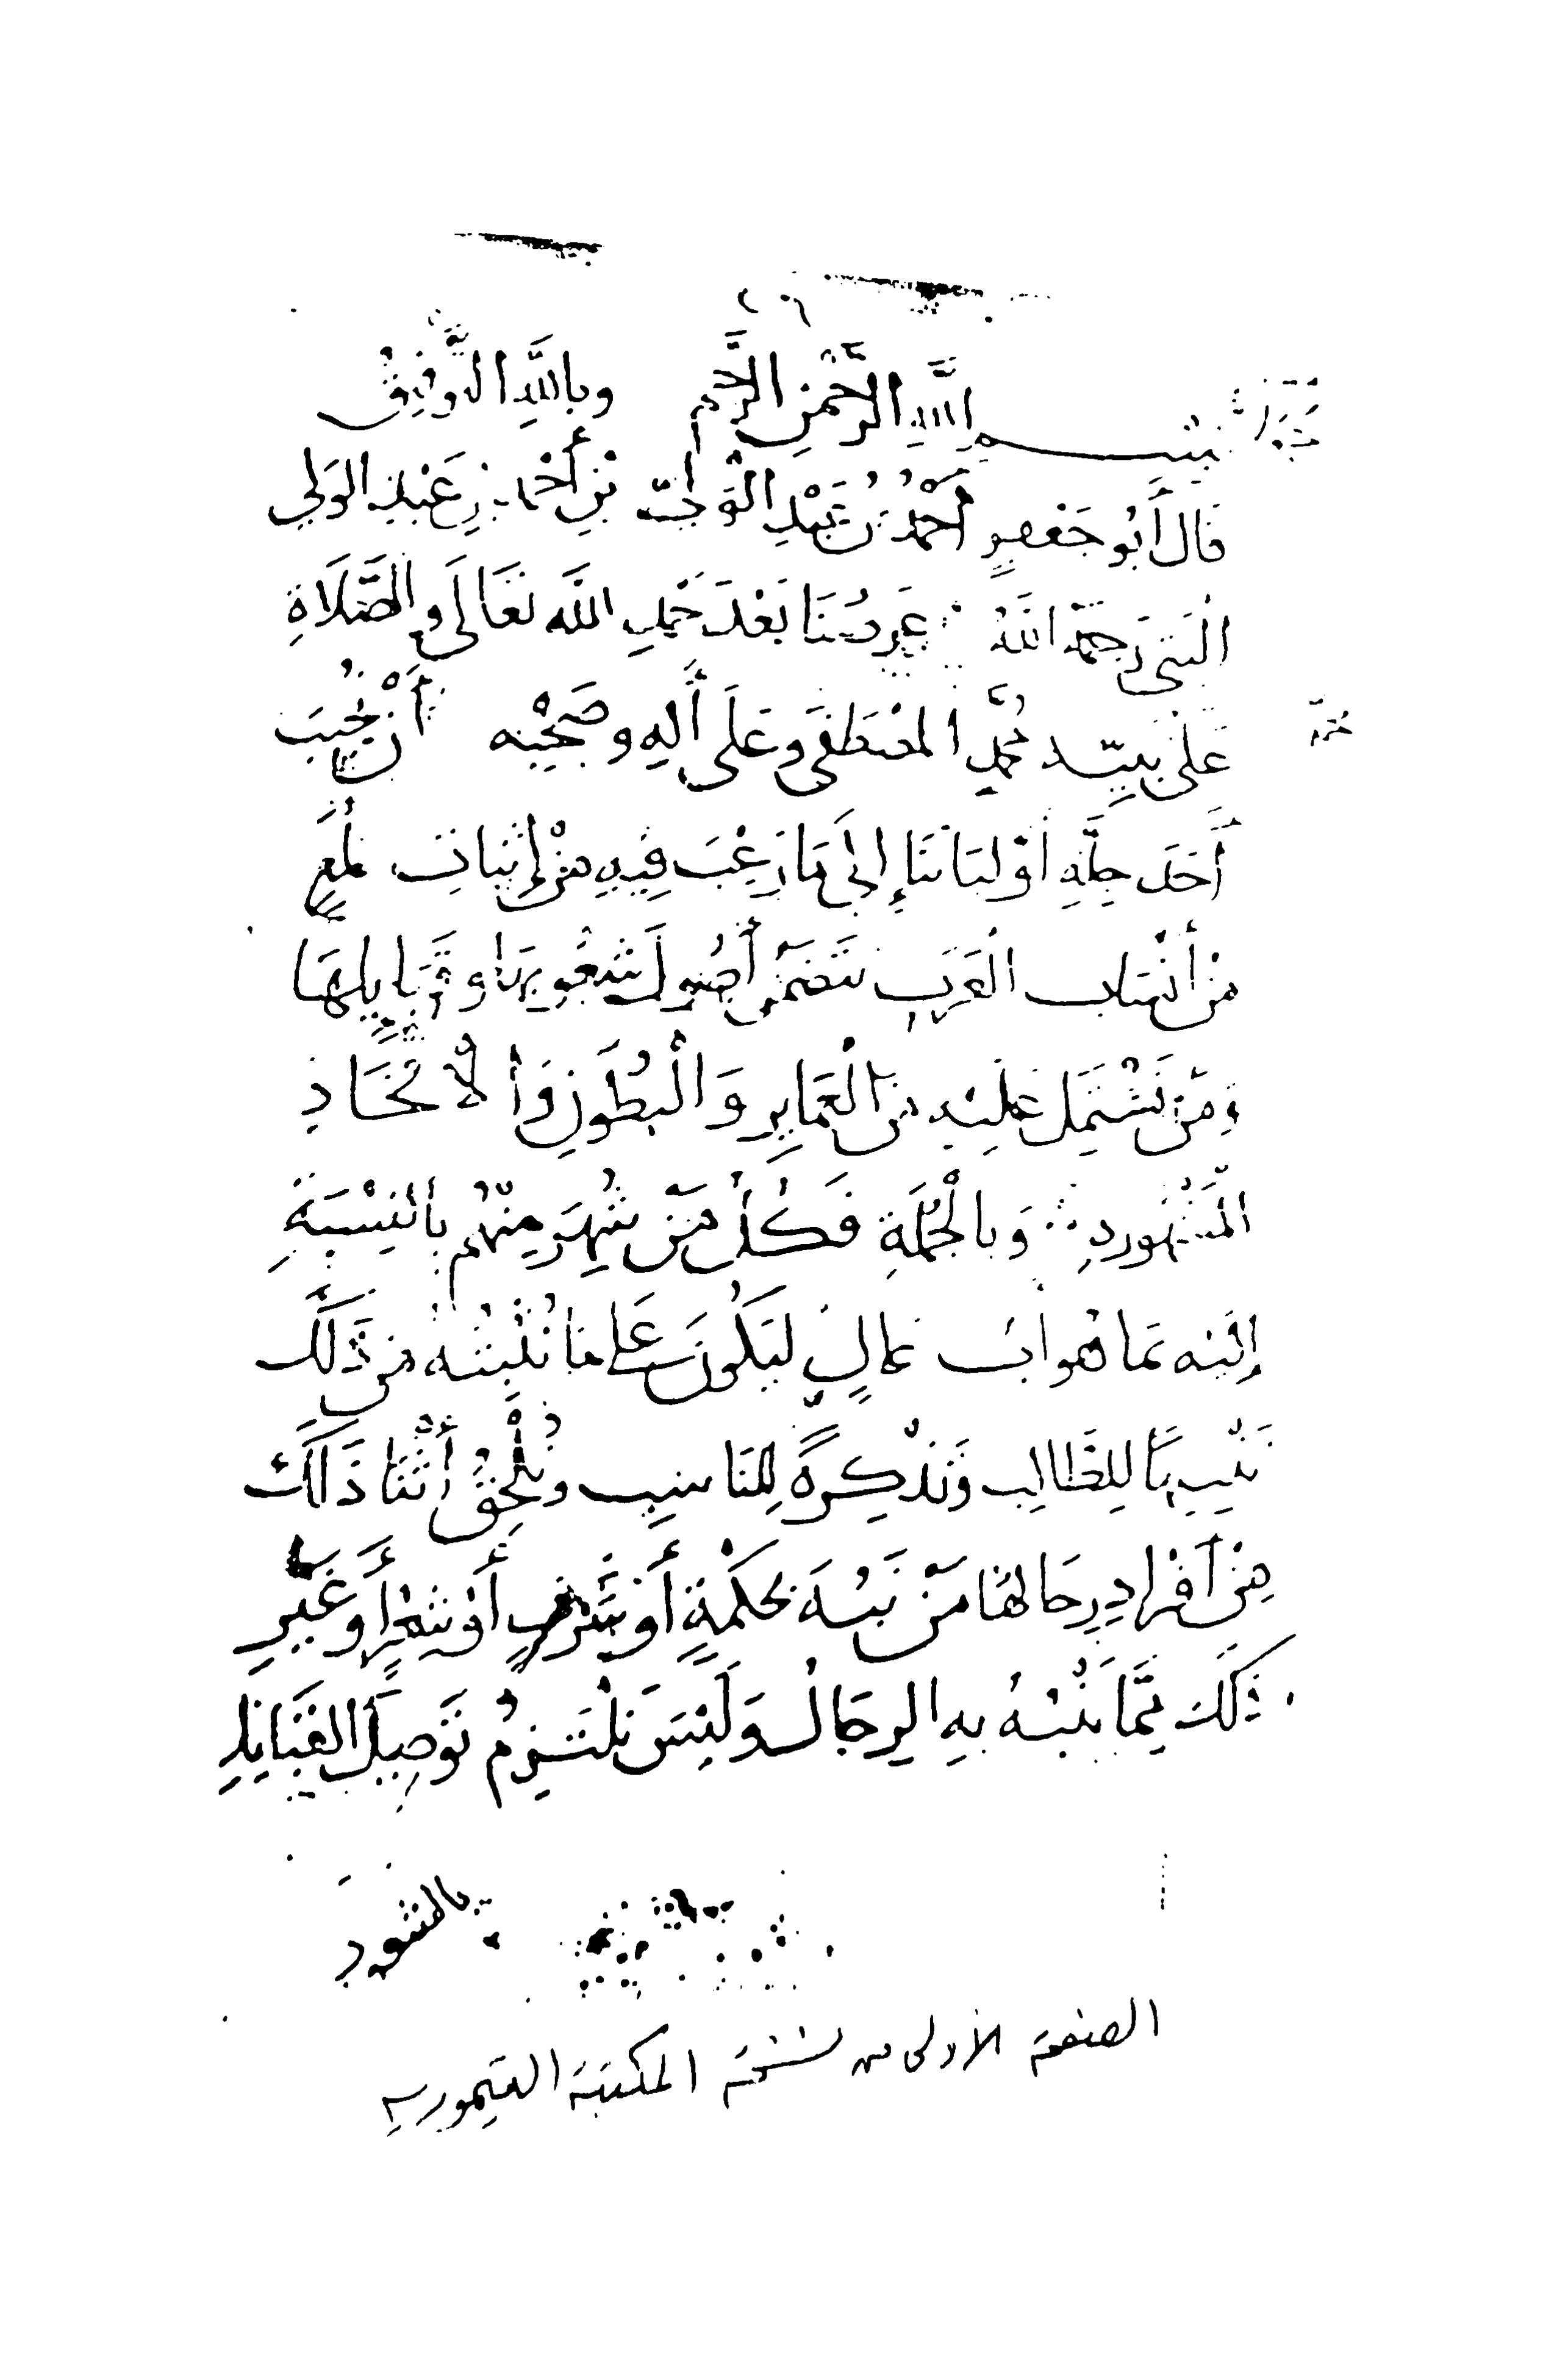 بسم الله الرحمن الرحيم وبالله التوفيق
قَال أَبُو جَعفرٍ أَحْمَدُ بْنُ عَبْدِ الْوَلِيّ بْنِ أَحْمَد بْنِ عَبْدِ الوَلي
البتى رَحِمَهُ اللَّهُ غَرضُنَا بَعْدَ حَمْدِ اللَّه تَعَالَى والصَّلَاةِ
عَلى نبيّه محمدٍ المصْطَفَى وعَلَى أَلِهِ وصَحْبِه أَنْ نُجِيبَ
أَحَدَ جِلَّةِ أَوْليَائنَا إِلى مَا رَغِبَ فِيهِ مِنْ إثباتِ لُمَعٍ
مِنْ أَنْسَاب الْعَرَبِ تتَضَمَّن أُصُولَ شُعُوبِهَا وقَبَايِلِهَا
وَمَنْ تَشْتَمِل عَلَيْه مِنَ الْعَمَايِرِ وَالْبُطُونِ وَالْأَفْخَاذِ
الْمَشْهُورةِ وَبالْجُمْلَةِ فَكُلُّ مَنْ شُهِرَ مِنْهُم بالنِسْبَةِ
إِلَيْه مَا هُو أبٌ عَالٍ ليَكُونَ مَا نُثْبِتُهُ مِن ذَلك
تَنْبِيهًا لِلطَّالِبِ وَتَذْكِرَةً لِلنَاسِبِ ونُلْحِقُ أَثْنَا ذَلَكَ
مِنْ أَفْرَادِ رِجَالهَا مَنْ نَبُهَ بحكْمَةٍ أَوْ شَرَفٍ أَوْ شِعْرٍ أَوغَيْرِ
ذَلكَ مِمَّا يَنْبُهُ بِهِ الرِجَالُ وَلَيْسَ نلْتَزِمُ تَوْصِيلَ القَبَائلِ
الصفحة الأولى من نسخة المكتبة التيمورية